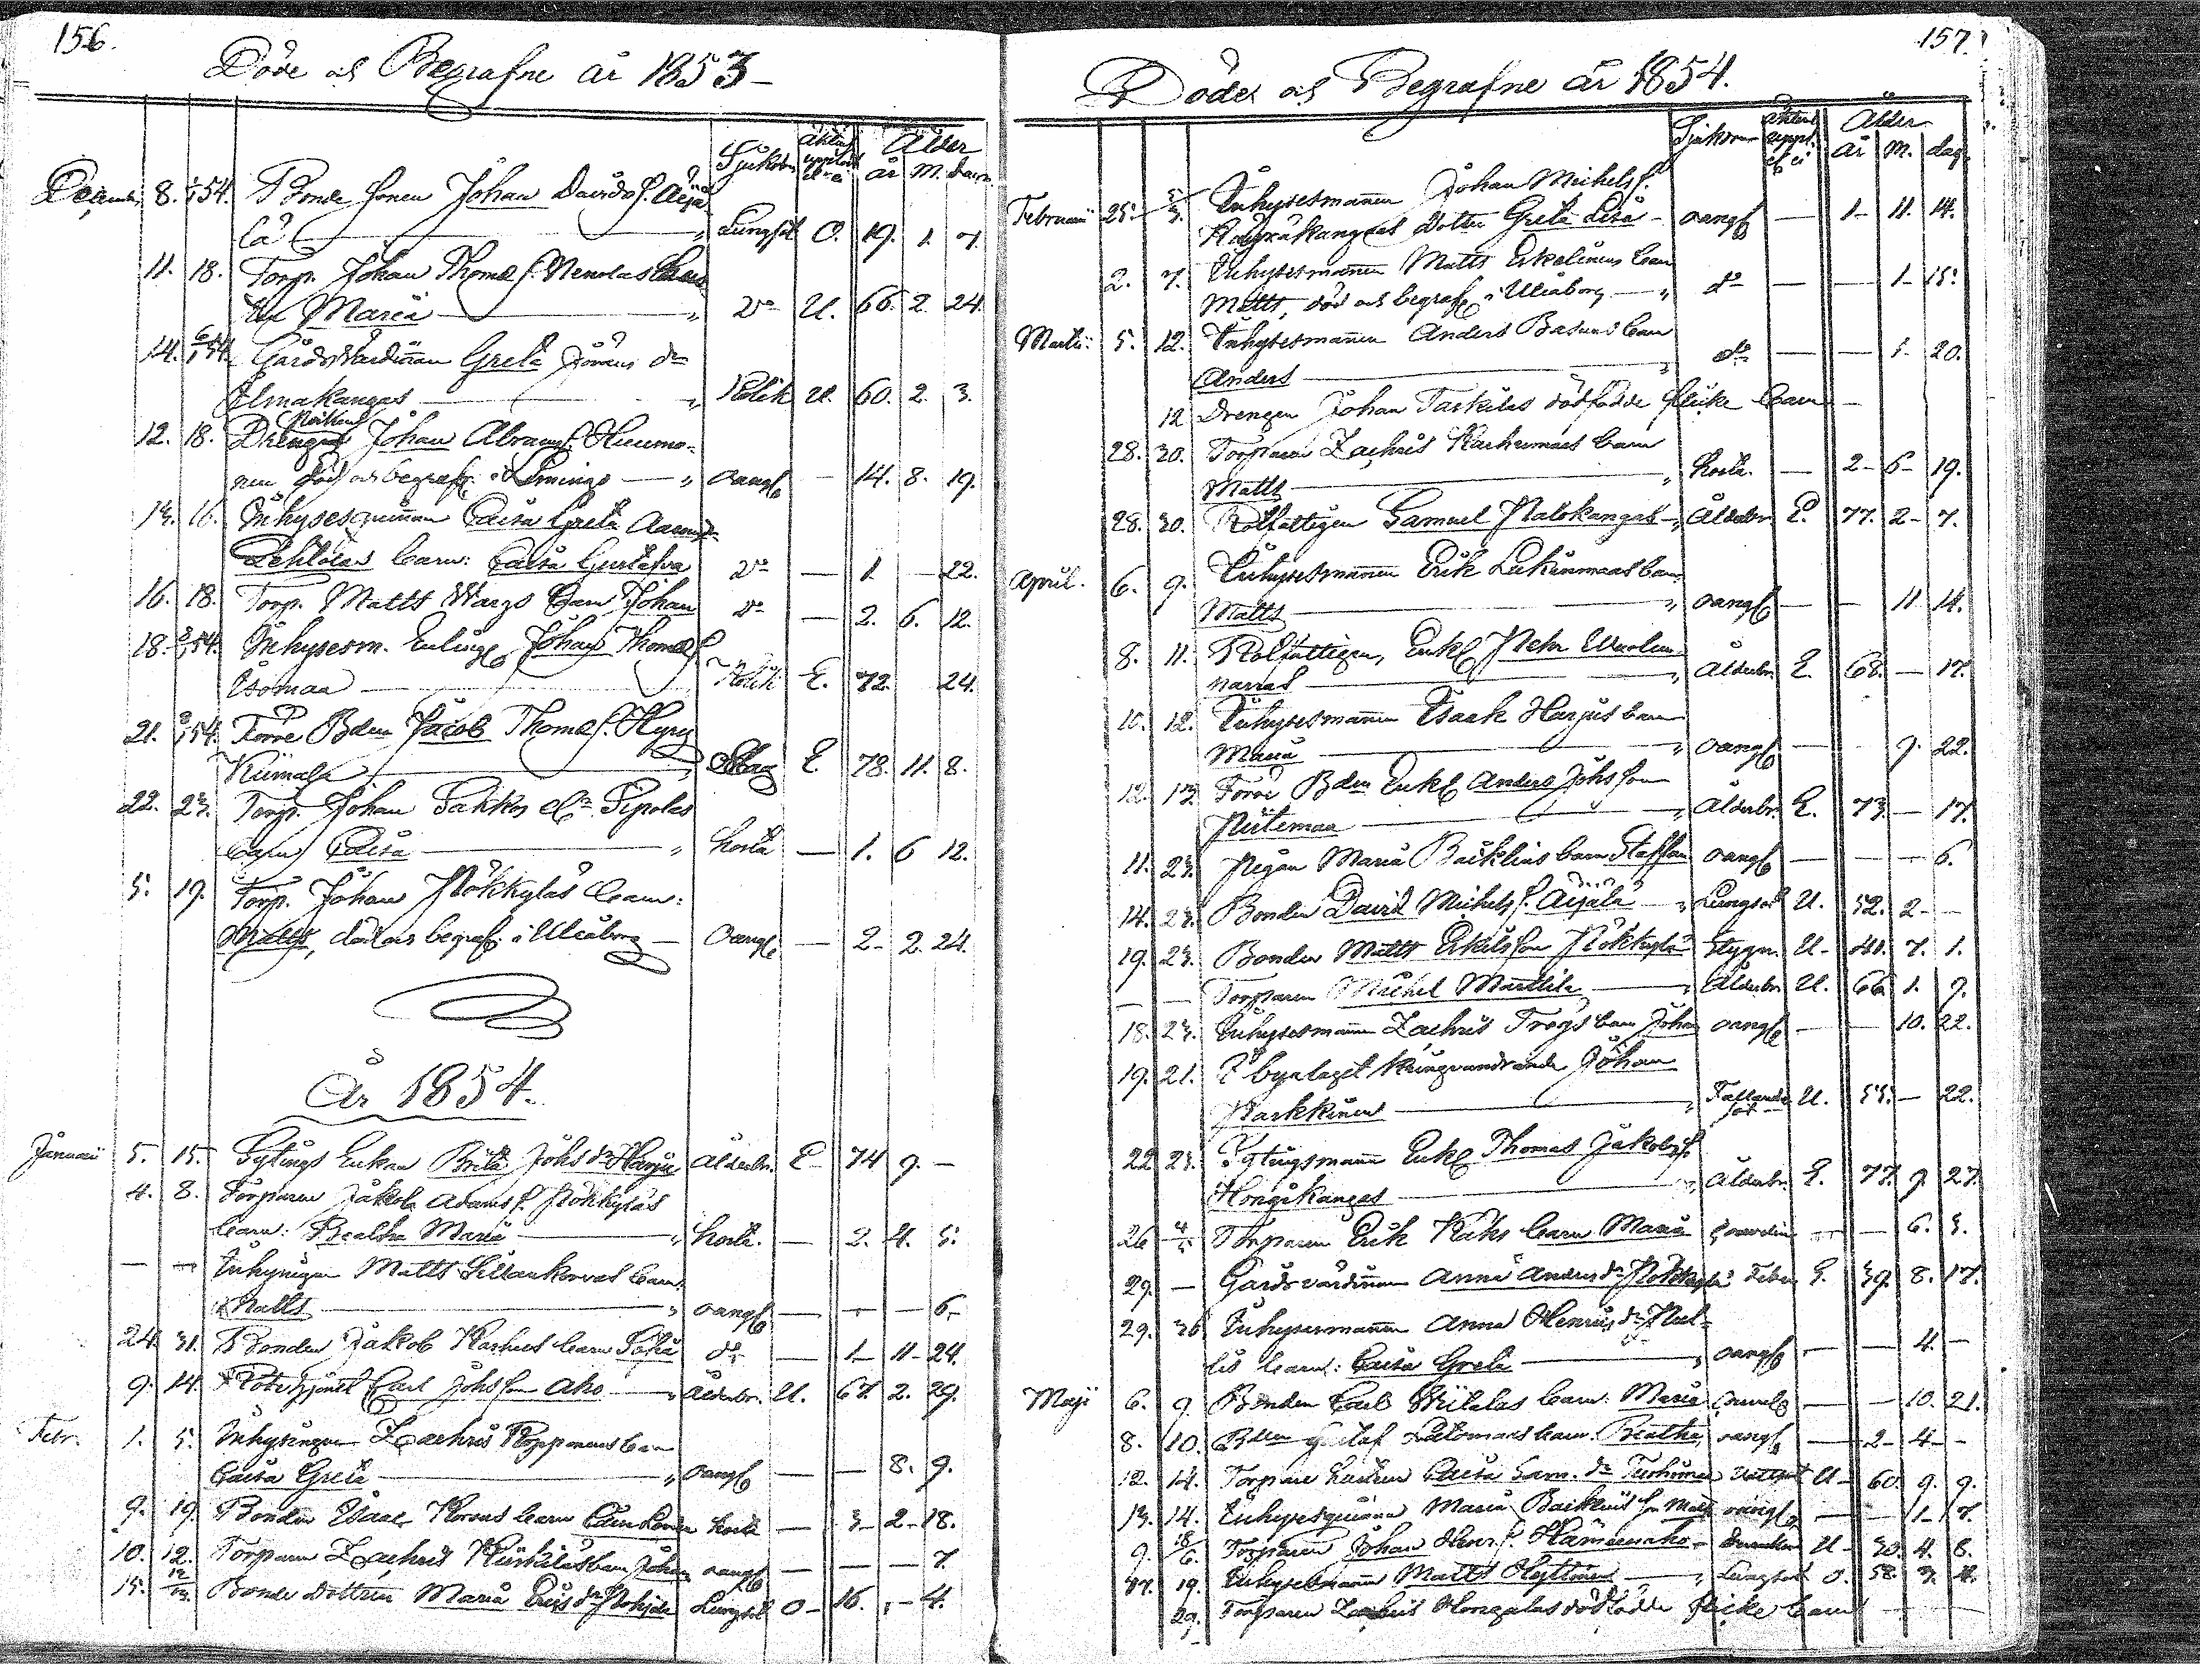 156.
Döde och Begrafne år 1853
Sjukdom
Ålder
år M. dagar
December 8. 54. Bonde sonen Johan Davids s. Äijä-
lä Lungsot O. 19. 1. 7.
11. 18. Torp. Johan Thomæ s. Nenolas
Maria Do U. 66. 2. 24.
14. 6/1 54. Gårdsvärdinnan Greta Johans dr
Ilmakangas Kolik U. 60. 2. 3.
12. 18. Drengen Johan Abrams s. Huumo-
nen död och begrafn. i Limingo oangf. — 14. 8. 19.
13. 16. Inhyseqvinnan Caisa Greta
Lehtolas barn: Caisa Gustafva Do — 1 22.
16. 18. Torp. Matts Wargs barn Johan Do — 2. 6. 12.
18. 54. Inhysesm. Enkling Johan Thomæ s.
Isomaa Kolik E. 72. 24.
21. 54. Förre Bden Jacob Thomæ s. Hyry
Kiimala E. 78. 11. 8.
22. 23. Torp. Johan Sakkos el. Sipolas
barn Caisa hosta — 1. 6 12.
5. 19. Torp. Johan Nokkylas barn:
Matts, död och begrafn. i Uleåborg oangf. — 2. 2. 24.
År 1854.
Januarii 5. 15. Sytings Enkan Brita Johs dr Harju Ålderdr. E 74 9. —
4. 8. Torparen Jakob Adams s. Nokkyläs
barn: Beatha Maria hosta. — 2. 4. 5.
— — Inhysingen Matts Siltankorvas barn
Matts oangf. — — — 6.
24. 31. Bonden Jakob Karhus barn Sofia do — 1 11 24.
9. 14. Rotehjonet Carl Johs son Aho Ålderdr. U. 67. 2. 29.
Febr. 1. 5. Inhysingen Zachris Kopponens barn
Caisa Greta oangf. — — 8. 9.
9. 19. Bonden Isaac Korvas barn hosta — 3 2 18.
10. 12. Torparen Zachris barn Johan oangf. — — — 7.
15. 12/3. Bonde Dottren Maria Eriks dr Lungsot O 16. — 4.
157.
Döde och Begrafne år 1854.
Sjukdom
Ålder
år M. dag.
Februarii 25. 5/3. Inhysesmannen Johan Michels s.
dotter Greta Lisa oangf. — 1 11. 14.
2. 7. Inhysesmannen Matts Erkelinens barn
Matts, död och begrafn. i Uleåborg do — — 1 15.
Martii 5. 12. Inhysesmannen Anders Basuns barn
Anders do — — 1. 20.
12 Drengen Johan Taskilas dödfödde flicke barn —
28. 30. Torparen Zachris Karhumaas barn
Matts hosta. — 2 6 19.
28. 30. Rotfattigen Samuel Palokangas Ålderdr. E. 77. 2 7.
April. 6. 9. Inhysesmannen Erik Lukinmaas barn
Matts oangf. — — 11 14.
8. 11. Rotfattigen, Enkl. Pehr
Ålderdr. E. 68. — 17.
10. 12. Inhysesmannen Isaak Harjus barn
Maria oangf. — 9. 22.
12. 17. Förre Bden Enkl. Anders Johs son
Niitemaa Ålderdr. E. 73. — 17.
11. 23. Pigan Maria Bäcklins barn Staffan oangf. — — — 6.
14. 23. Bonden David Michels s. Äijälä Lungsot U. 52. 2 —
19. 23. Bonden Matts Erkils son Nokkylä Stygn. U. 41. 7. 1.
— — Torparen Michel Marttila Ålderdr. U. 66. 1. 9.
18. 23. Inhysesmannen Zachris Trogs barn Johan oangf. — — 10. 22.
19. 21. I byalaget kringvandrande Johan
Karkkinen Fallande sot U. 55. — 22.
22 23. Sytingsmann Enkl. Thomas Jakobs s.
Hongikangas Ålderdr. E. 77. 9 27.
26 4/5. Torparen Erik Kahs barn Maria — — 6. 3.
29. — Gårdsvärdinnan Anna Anders dr Nokkylä Feber G. 39. 8. 17.
29. 30 Inhysesmannen Anna Henrics dr
barn: Caisa Greta oangf. — — 4. —
Maji 6. 9. Bonden Carl barn: Maria — — 10. 21.
8. 10. Bden Gustaf barn Beatha oangf. — 2 4 —
12. 14. Torpare hustrun Caisa Sam. dr Vattsot U 60. 9. 9.
13. 14. Inhyseqvinnan Maria Bäcklins son Matts oangf. — — 1 7.
9. 18/6. Torparen Johan Henr. s. Hämeenaho U 30. 4. 6.
17. 19. Inhysesmannen Matts Hyttinen Lungsot O. 58. 3. 4.
29. Torparen Zachris Hongalas dödfödde flicke barn —